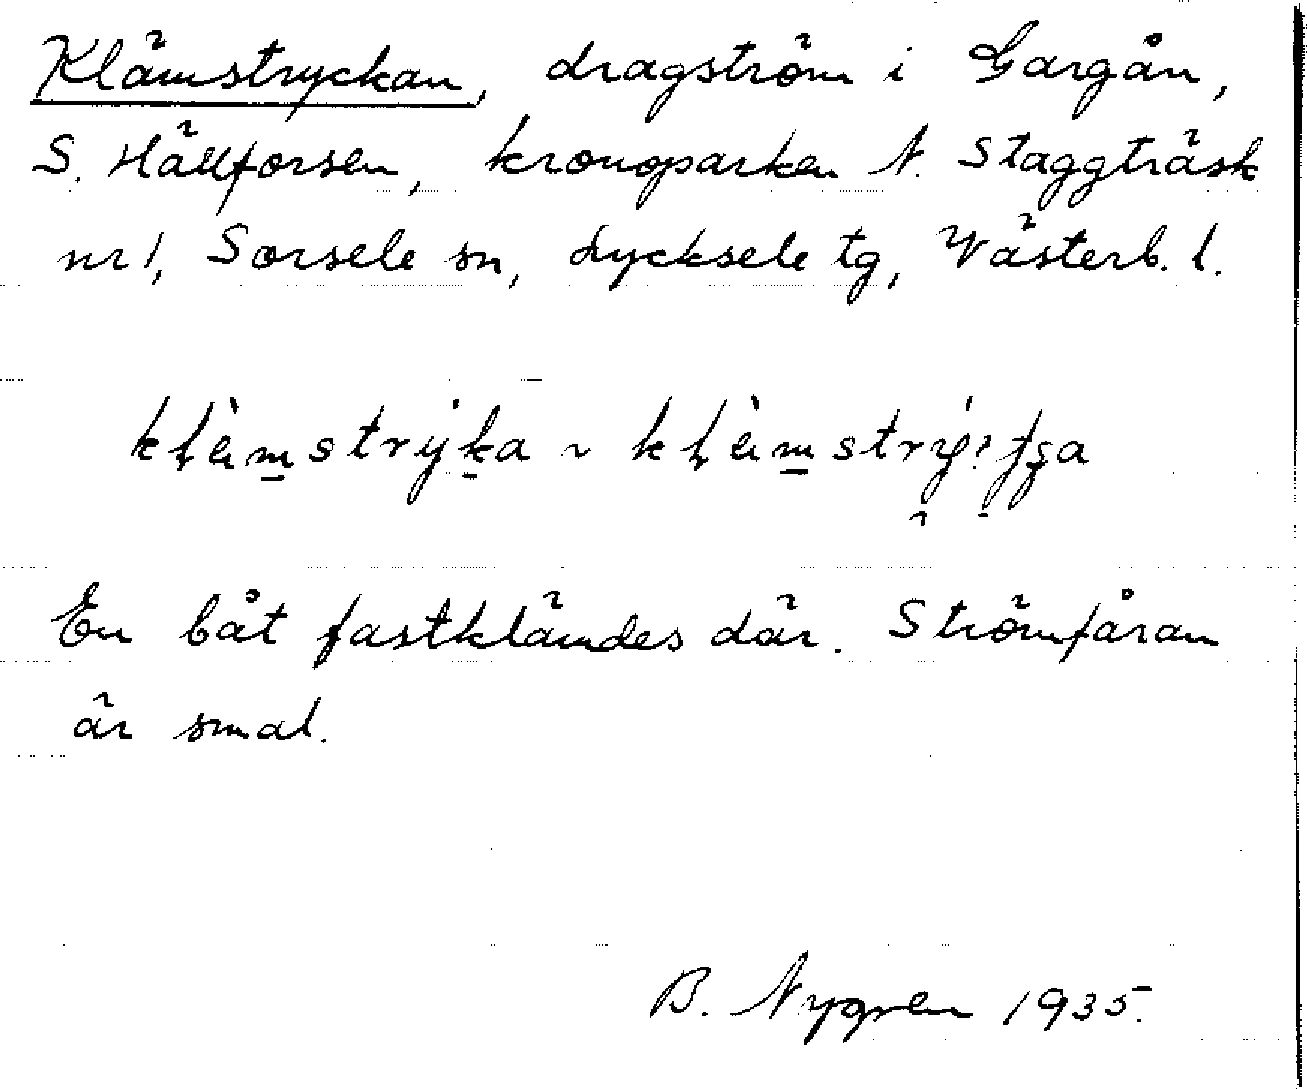 Klämstryckan, dragström i Gargån,
S. Hällforsen, kronoparken N. Staggträsk
nr 1, Sorsele sn, Lycksele tg, Västerb. l.
En båt fastklämdes där. Strömfåran
är smal.
B. Nygren 1935.